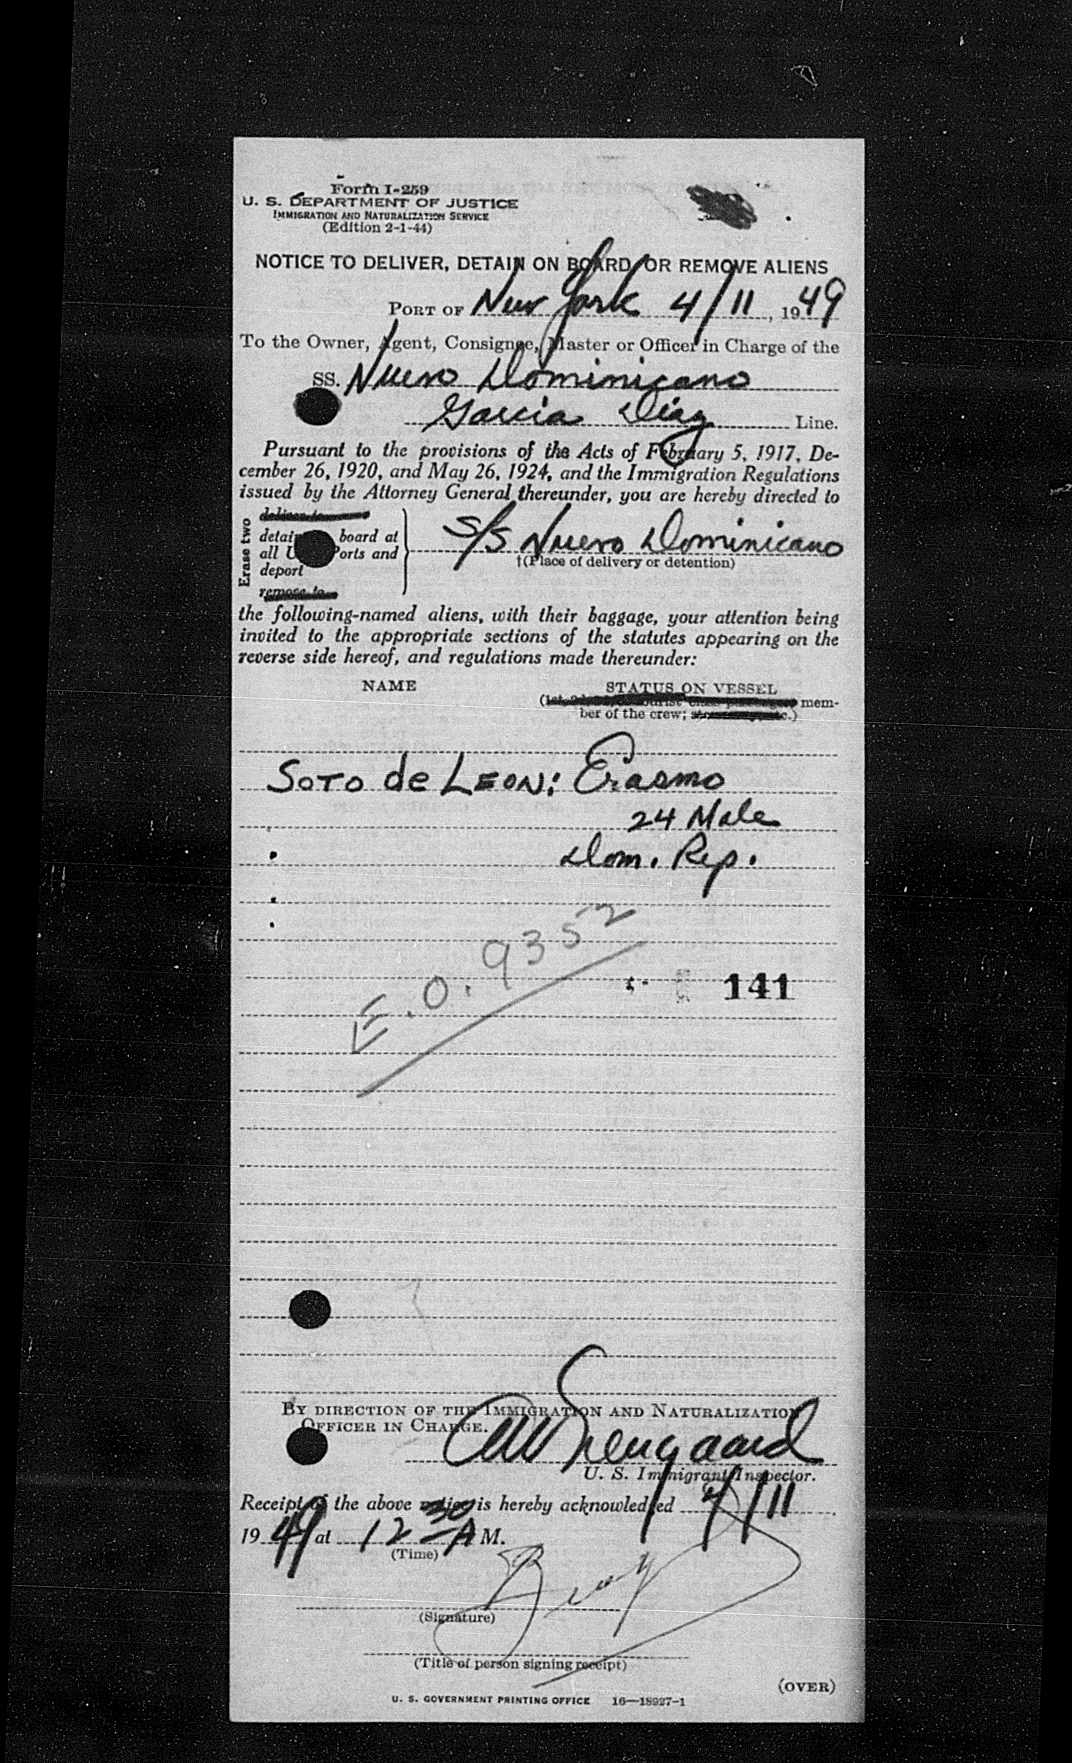 Form I-259
U. S. DEPARTMENT OF JUSTICE
IMMIGRATION AND NATURALIZATION SERVICE
(Edition 2-1-44)
NOTICE TO DELIVER, DETAIN ON BOARD, OR REMOVE ALIENS
PORT OF New York 4/11, 1949
To the Owner, Agent, Consignee, Master or Officer in Charge of the
SS. Nuevo Dominicano
Garcia Diaz Line.
Pursuant to the provisions of the Acts of February 5, 1917, De-
cember 26, 1920, and May 26, 1924, and the Immigration Regulations
issued by the Attorney General thereunder, you are hereby directed to
Erase two
deliver to
detain board at
all U Ports and
deport
remove to
S/S Nuevo Dominicano
†(Place of delivery or detention)
the following-named aliens, with their baggage, your attention being
invited to the appropriate sections of the statutes appearing on the
reverse side hereof, and regulations made thereunder:
NAME STATUS ON VESSEL
(1st, tourist class passengers mem-
ber of the crew; etc.)
SOTO de LEON: Erasmo
24 Male
Dom. Rep.
E.O. 9352
141
BY DIRECTION OF THE IMMIGRATION AND NATURALIZATION
OFFICER IN CHARGE.
U. S. Immigrant Inspector.
Receipt of the above notice is hereby acknowledged 4/11
1949 at 12 30 A M.
(Time)
(Signature)
(Title of person signing receipt)
(OVER)
U. S. GOVERNMENT PRINTING OFFICE 16—18927-1